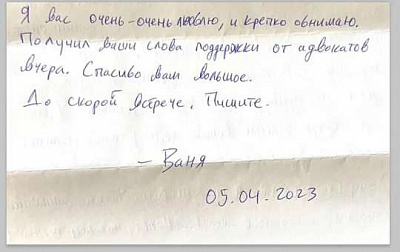 Я вас очень-очень люблю, и крепко обнимаю.
Получил ваши слова поддержки от адвокатов
вчера. Спасибо вам большое.
До скорой встречи. Пишите.
– Ваня
05.04.2023